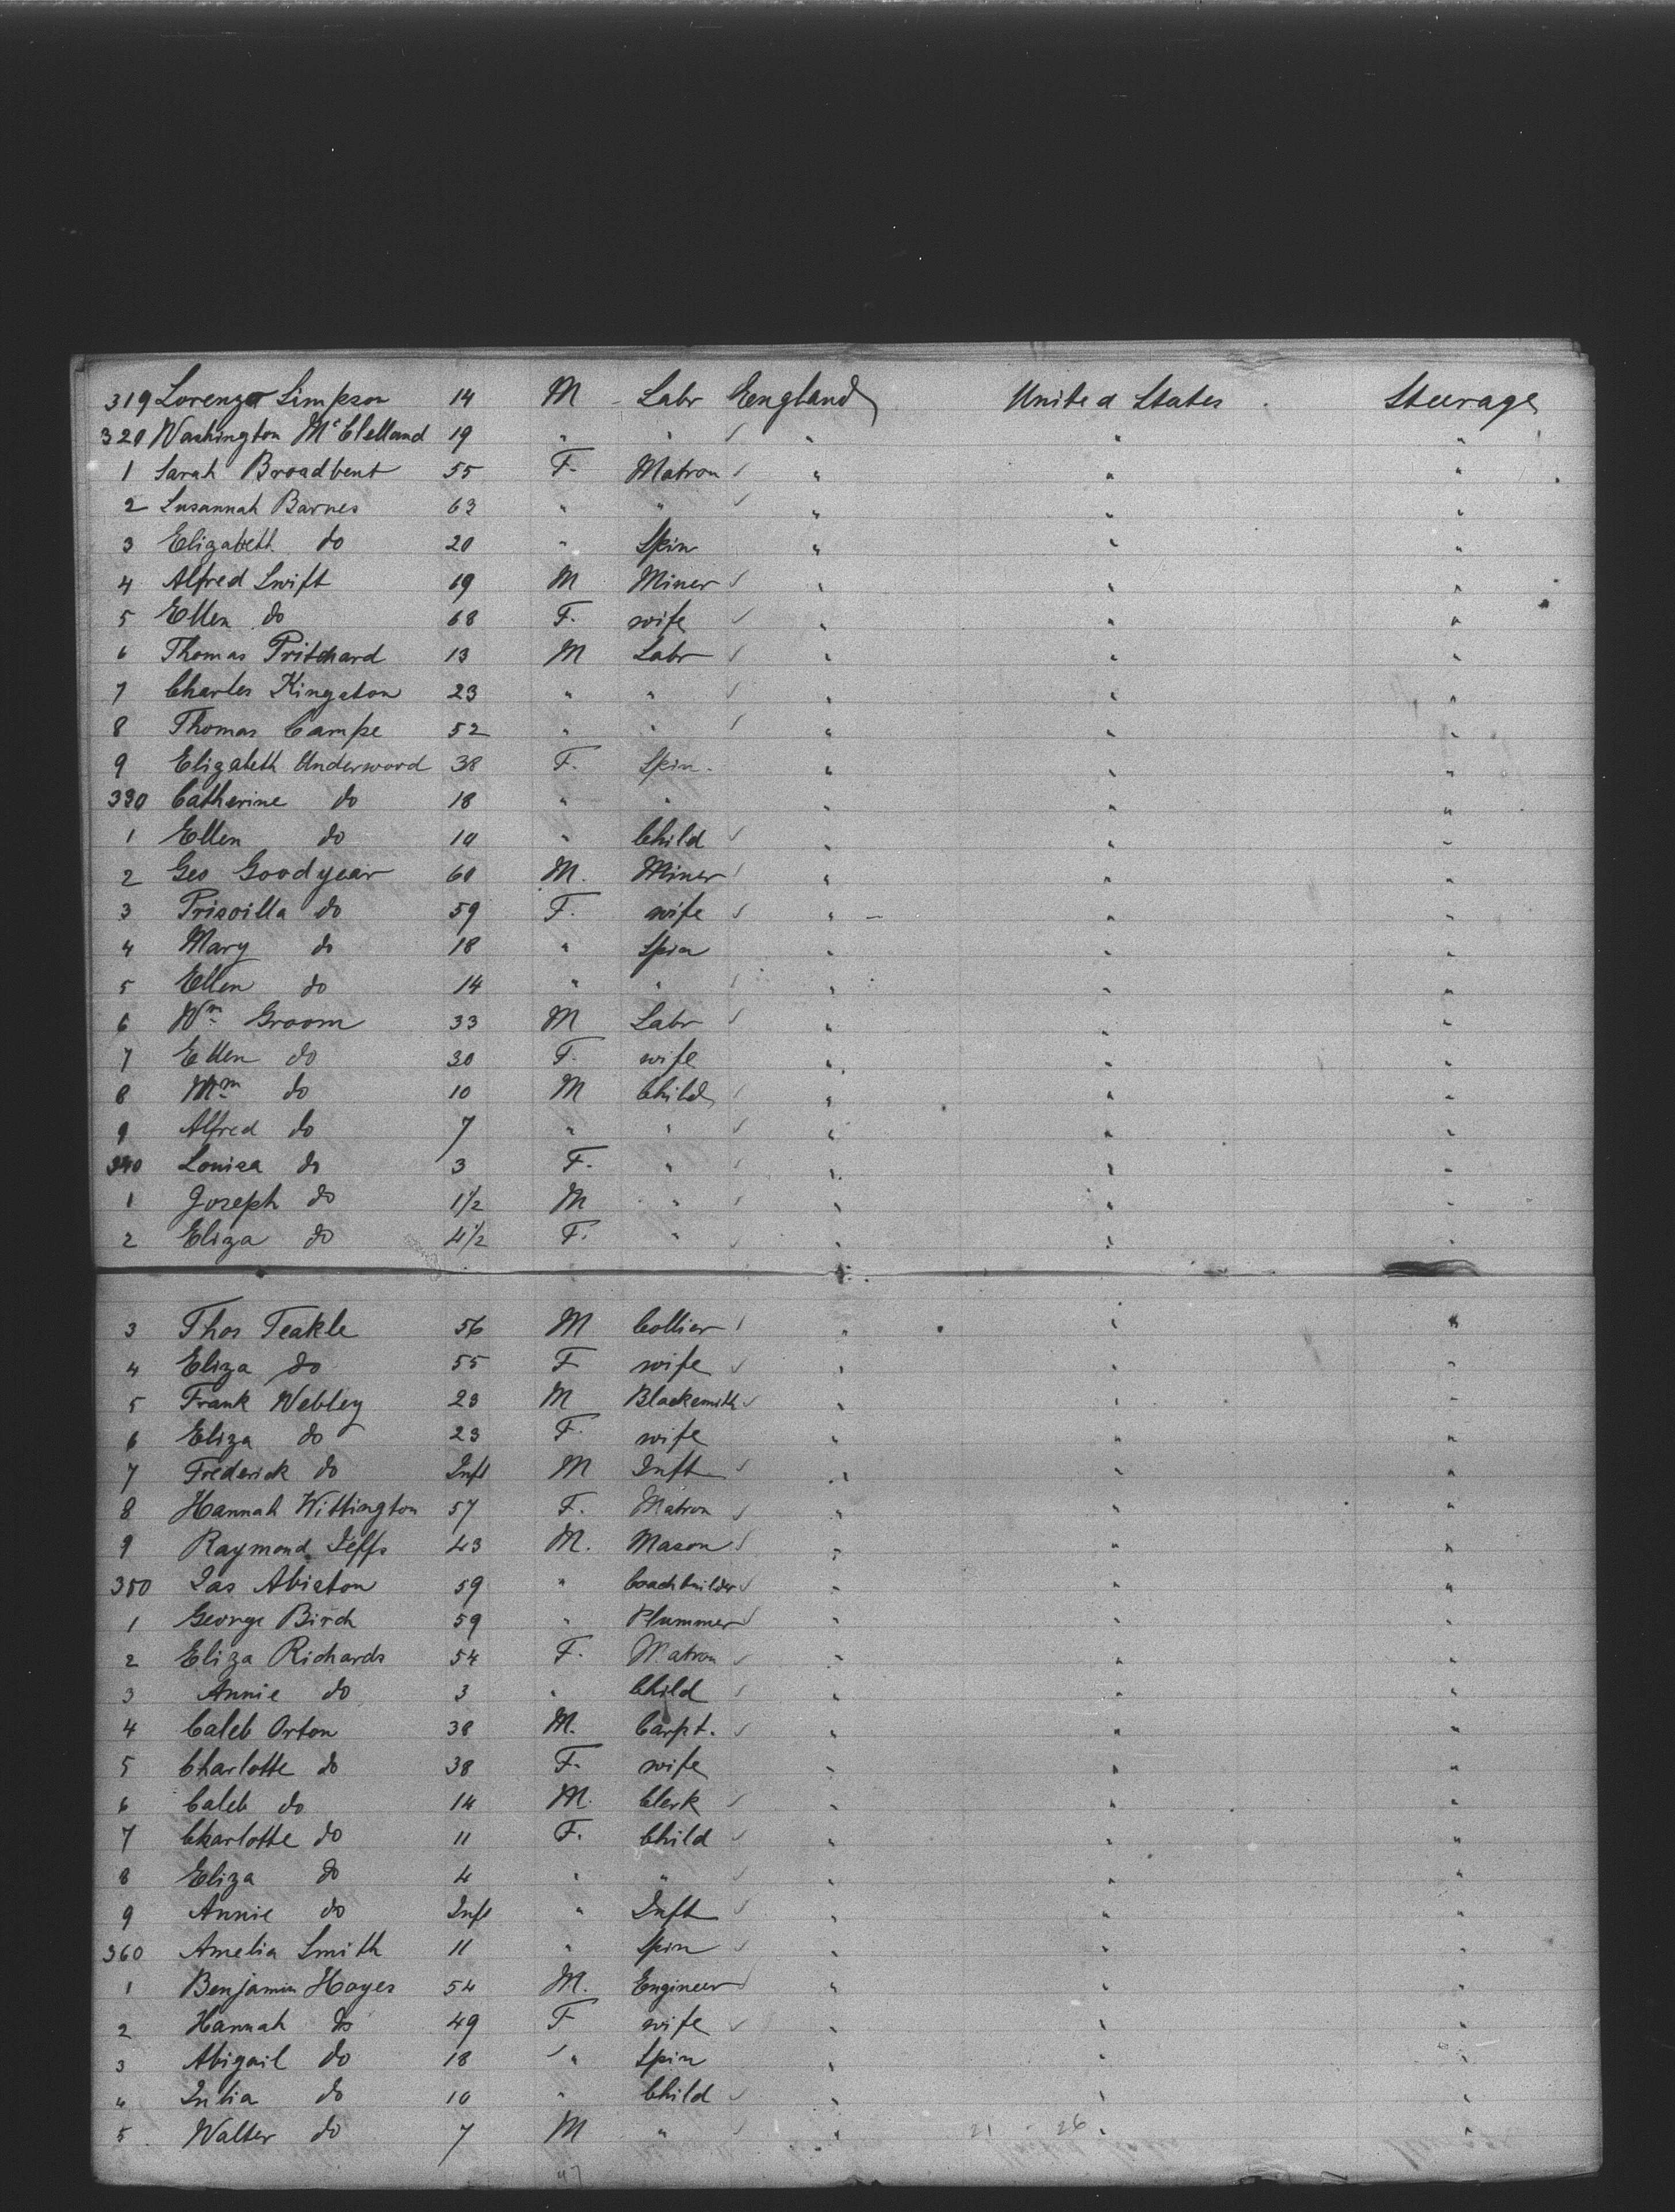 319 Lorenzo Simpson 14 M Labr England United States Steerage
320 Washington McClelland 19 " " " " "
1 Sarah Broadbent 55 F. Matron " " "
2 Susannah Barnes 63 " " " " "
3 Elizabeth do 20 " Spin " " "
4 Alfred Swift 69 M Miner " " "
5 Ellen do 68 F. wife " " "
6 Thomas Pritchard 13 M Labr " " "
7 Charles Kingston 23 " " " " "
8 Thomas Campe 52 " " " " "
9 Elizabeth Underwood 38 F. Spin. " " "
330 Catherine do 18 " " " " "
1 Ellen do 10 " Child " " "
2 Geo Goodyear 60 M. Miner " " "
3 Priscilla do 59 F. wife " " "
4 Mary do 18 " Spin " " "
5 Ellen do 14 " " " " "
6 Wm Groom 33 M Labr " " "
7 Ellen do 30 F. wife " " "
8 Wm do 10 M Child " " "
9 Alfred do 7 " " " " "
340 Louisa do 3 F. " " " "
1 Joseph do 1½ M " " " "
2 Eliza do 4½ F. " " " "
3 Thos Teakle 56 M Collier " " "
4 Eliza do 55 F wife " " "
5 Frank Webley 23 M Blacksmith " " "
6 Eliza do 23 F. wife " " "
7 Frederick do Inft M Inft " " "
8 Hannah Wittington 57 F. Matron " " "
9 Raymond Jeffs 43 M. Mason " " "
350 Jas Abiston 59 " Coachbuilder " " "
1 George Birch 59 " Plummer " " "
2 Eliza Richards 54 F. Matron " " "
3 Annie do 3 " Child " " "
4 Caleb Orton 38 M. Carpt. " " "
5 Charlotte do 38 F. wife " " "
6 Caleb do 14 M. Clerk " " "
7 Charlotte do 11 F. Child " " "
8 Eliza do 4 " " " " "
9 Annie do Inft " Inft " " "
360 Amelia Smith 11 " Spin " " "
1 Benjamin Hayes 54 M. Engineer " " "
2 Hannah do 49 F wife " " "
3 Abigail do 18 " Spin " " "
4 Julia do 10 " Child " " "
5 Walter do 7 M " " " "
21 - 26